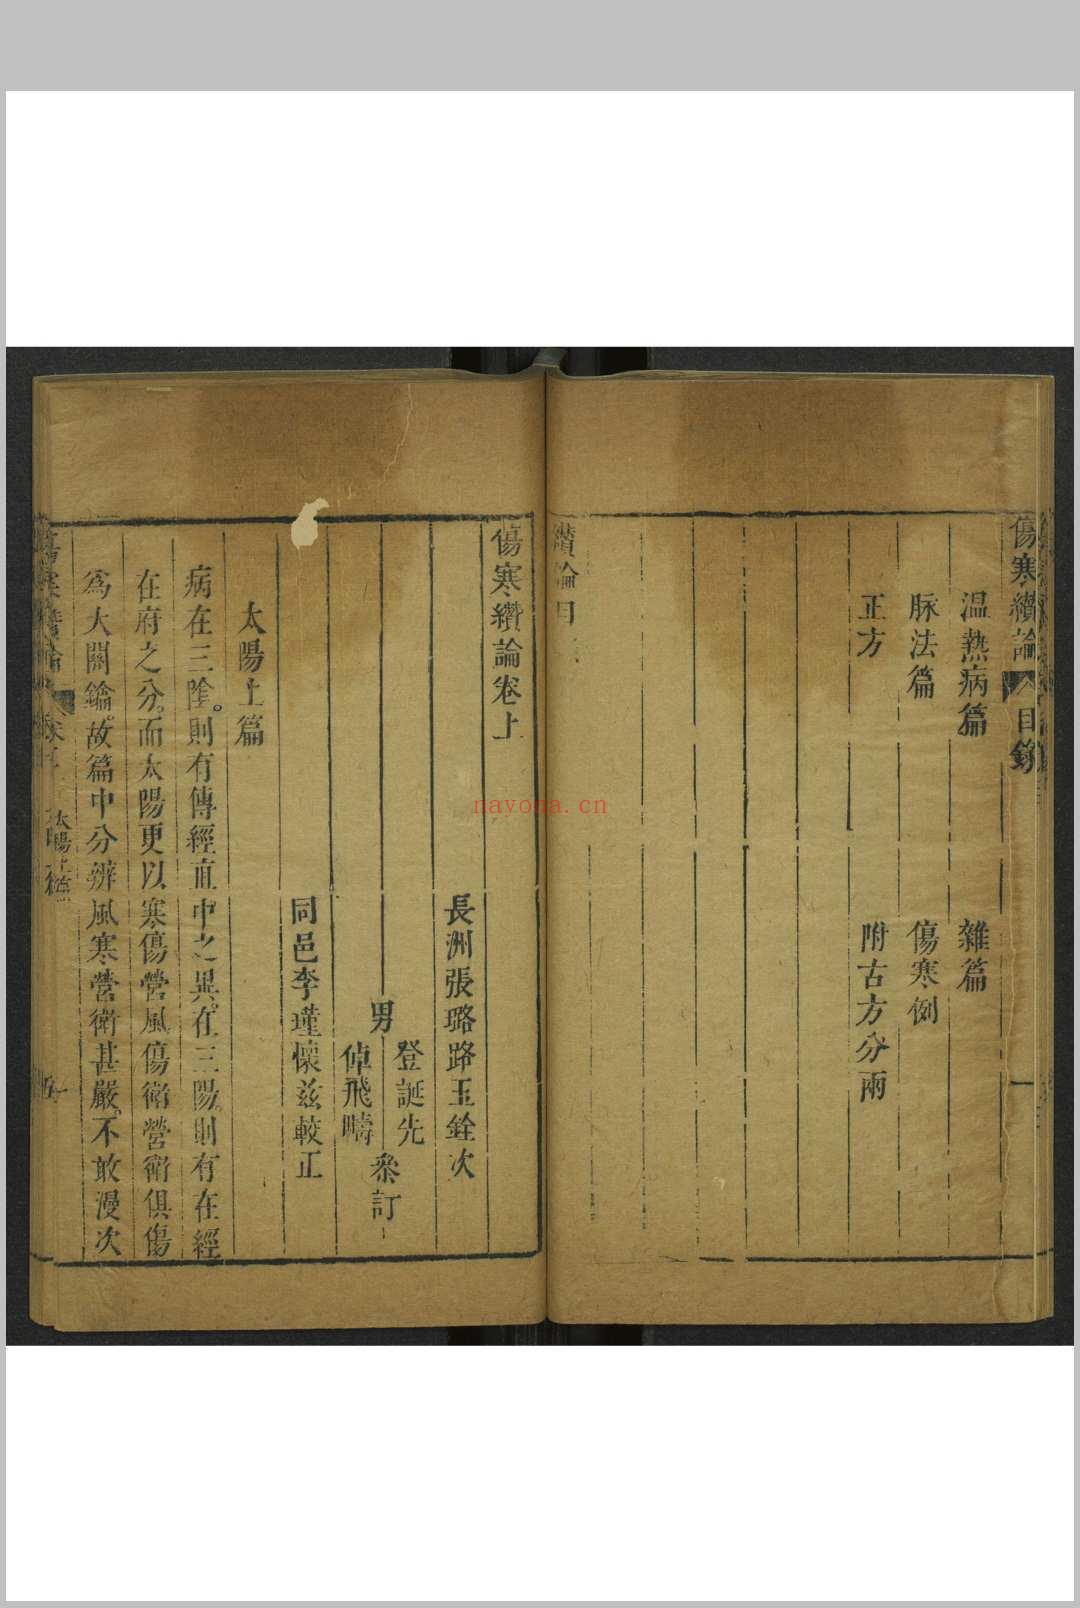 傷寒纘論 目錄 一
溫熱病篇 雜篇
脉法篇 傷寒例
正方 附古方分兩
纘論目
傷寒纘論卷上
長洲張璐路玉銓次
男 登誕先 倬飛疇 叅訂
同邑李瑾懷兹較正
太陽上篇
病在三陰。則有傳經直中之異。在三陽。則有在經
在府之分。而太陽更以寒傷營風傷衛營衛俱傷
爲大關鑰。故篇中分辨風寒營衛甚嚴。不敢漫次
太陽上篇
nayona.cn